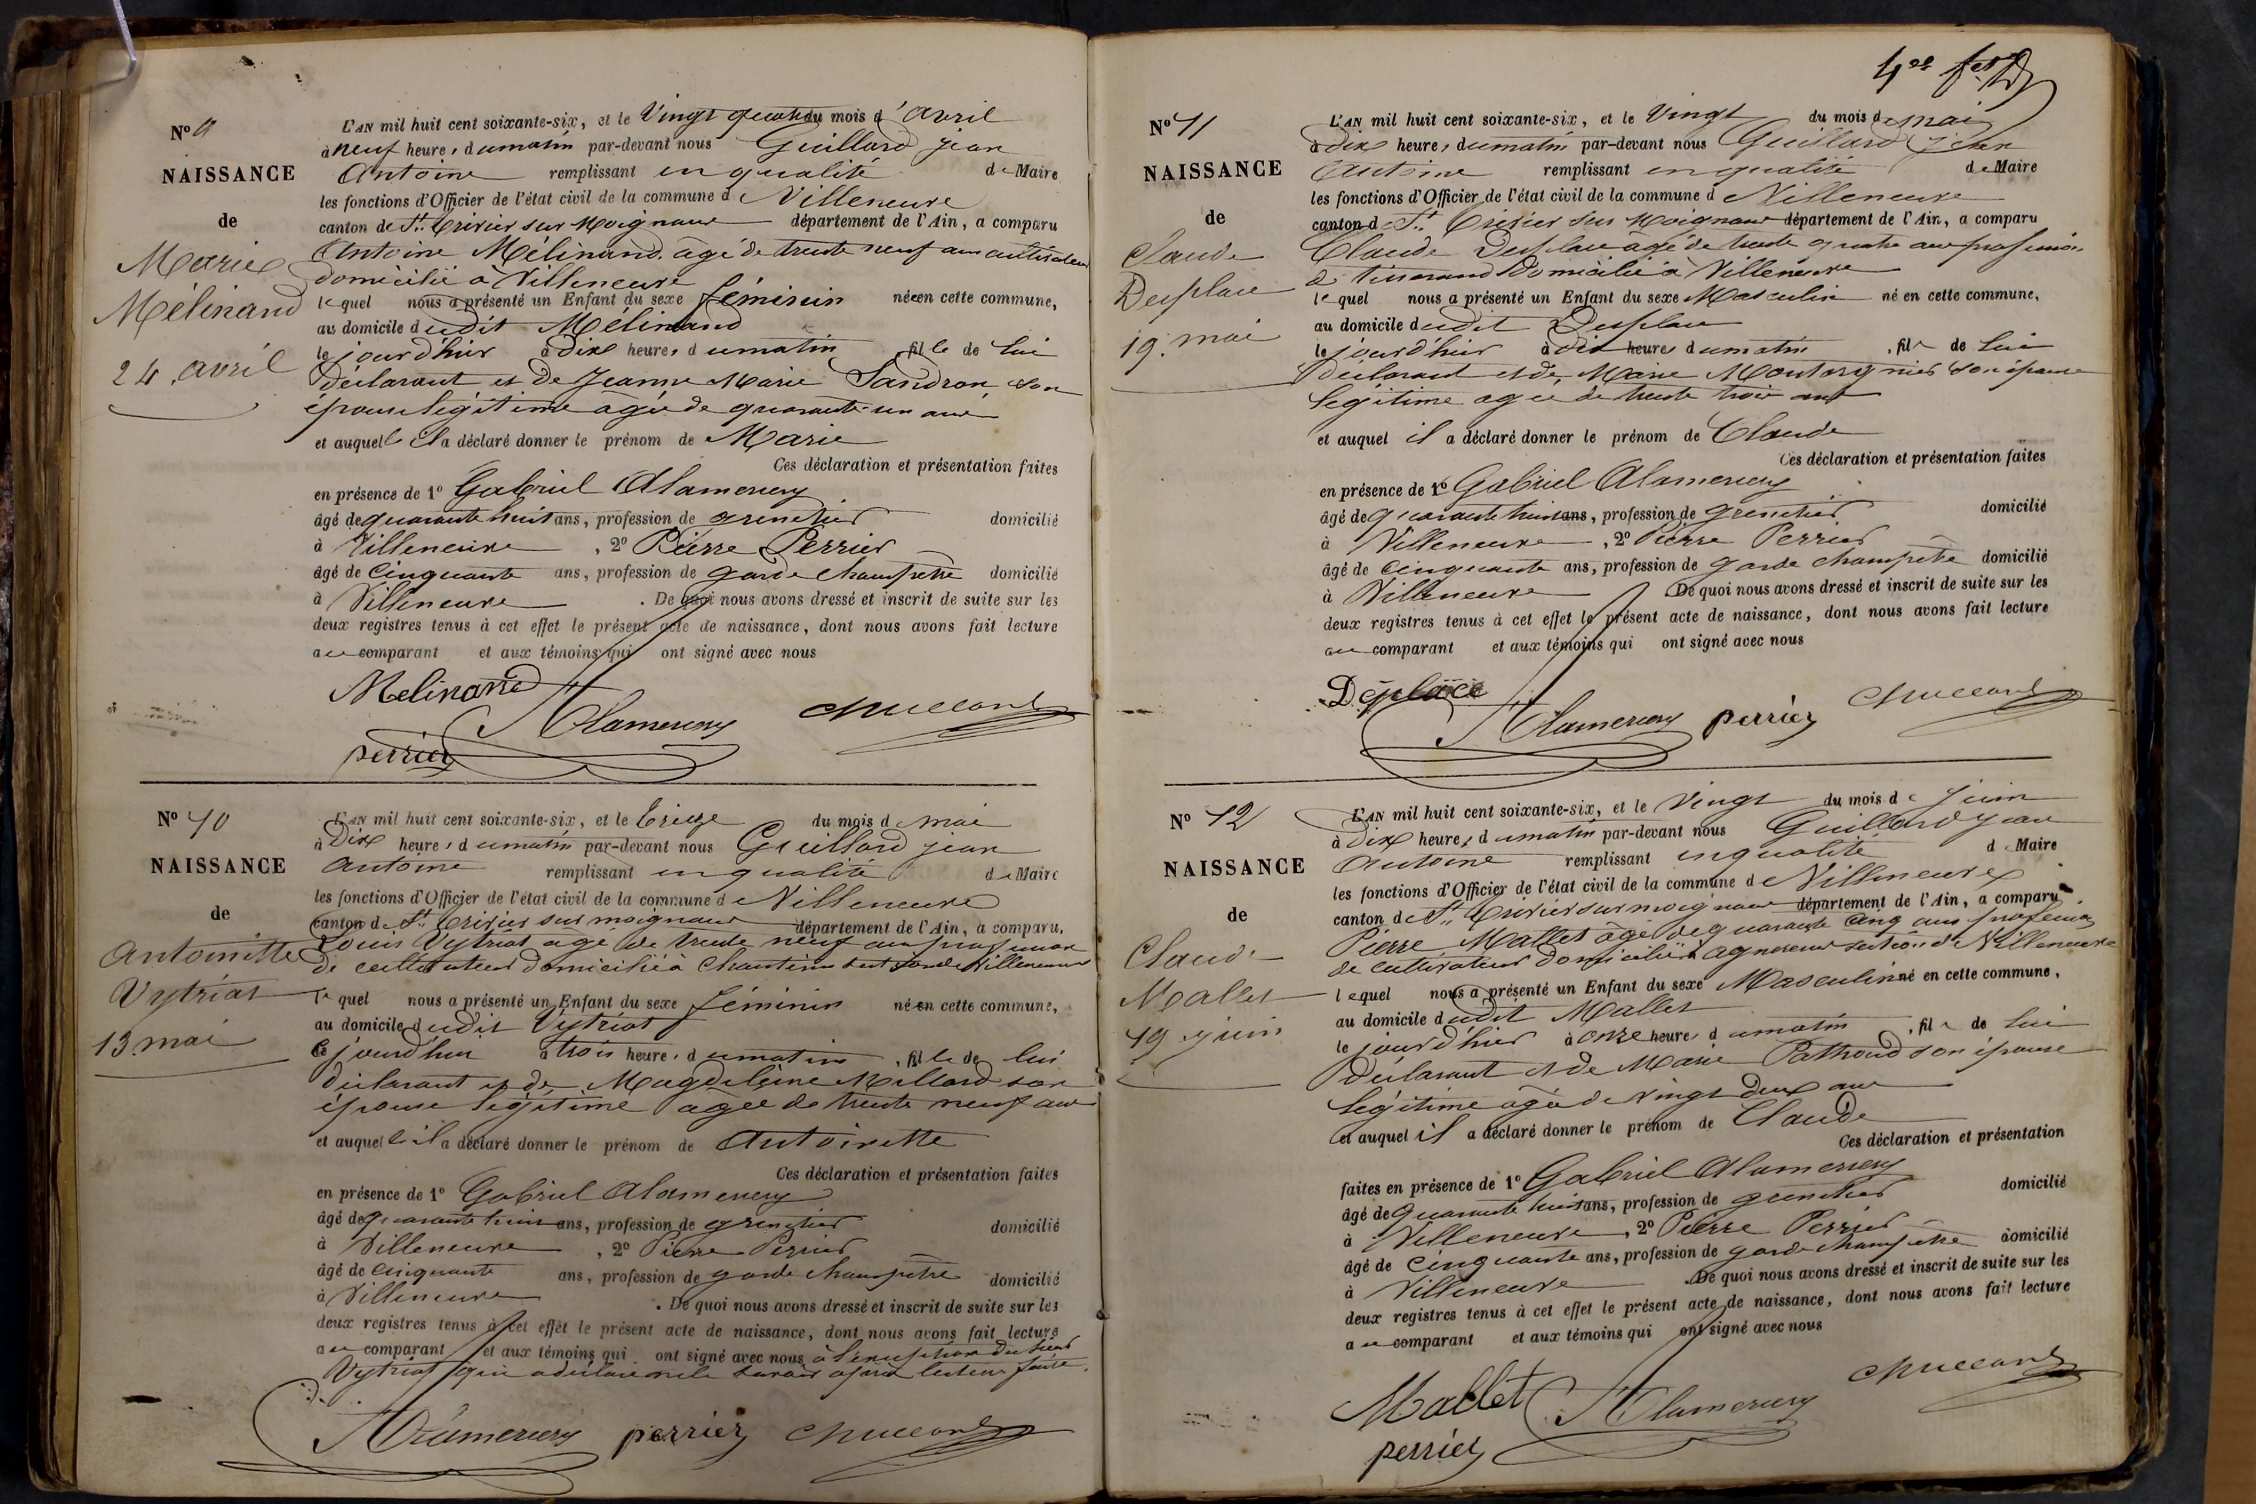 N° 9
NAISSANCE
de
Marie
Mélinand
24. avril
L'AN mil huit cent soixante-six, et le Vingt quatre du mois d'avril
à neuf heures du matin par-devant nous Guillard jean
Antoine remplissant en qualité de Maire
les fonctions d'Officier de l'état civil de la commune de Villeneuve
canton de St. Trivier sur Moignans département de l'Ain, a comparu
Antoine Mélinand âgé de trente neuf ans cultivateur
domicilié à Villeneuve
lequel nous a présenté un Enfant du sexe féminin née en cette commune,
au domicile dudit Mélinand
le jourd'hier à Dix heures du matin, fille de lui
déclarant et de Jeanne Marie Sandron son
épouse légitime âgée de quarante un ans
et auquelle il a déclaré donner le prénom de Marie
Ces déclaration et présentation faites
en présence de 1° Gabriel Alamercery
âgé de quarante huit ans, profession de grenetier domicilié
à Villeneuve, 2° Pierre Perrier
âgé de Cinquante ans, profession de garde champêtre domicilié
à Villeneuve. De quoi nous avons dressé et inscrit de suite sur les
deux registres tenus à cet effet le présent acte de naissance, dont nous avons fait lecture
au comparant et aux témoins qui ont signé avec nous
Mélinand
Alamercery
Guillard
perrier
N° 10
NAISSANCE
de
Antoinette
Vytriat
13. mai
L'AN mil huit cent soixante-six, et le treize du mois de mai
à Dix heures du matin par-devant nous Guillard jean
Antoine remplissant en qualité de Maire
les fonctions d'Officier de l'état civil de la commune de Villeneuve
canton de St. Trivier sur moignans département de l'Ain, a comparu,
Louis Vytriat âgé de trente neuf ans profession
de cultivateur domicilié à Chanteins section de Villeneuve
lequel nous a présenté un Enfant du sexe féminin née en cette commune,
au domicile dudit Vytriat
le jourd'hui à trois heures du matin, fille de lui
déclarant et de Magdeleine Millard son
épouse légitime âgée de trente neuf ans
et auquelle il a déclaré donner le prénom de Antoinette
Ces déclaration et présentation faites
en présence de 1° Gabriel Alamercery
âgé de quarante huit ans, profession de grenetier domicilié
à Villeneuve, 2° Pierre Perrier
âgé de cinquante ans, profession de garde champêtre domicilié
à Villeneuve. De quoi nous avons dressé et inscrit de suite sur les
deux registres tenus à cet effet le présent acte de naissance, dont nous avons fait lecture
au comparant et aux témoins qui ont signé avec nous à l'exception du sieur
Vytriat qui a déclaré ne le savoir après lecture faite.
Alamercery perrier Guillard
N° 11
NAISSANCE
de
Claude
Desplace
19. mai
L'AN mil huit cent soixante-six, et le Vingt du mois de mai
à dix heures du matin par-devant nous Guillard Jean
Antoine remplissant en qualité de Maire
les fonctions d'Officier de l'état civil de la commune de Villeneuve
canton de St. Trivier sur Moignans département de l'Ain, a comparu
Claude Desplace âgé de trente quatre ans profession
de tisserand domicilié à Villeneuve
lequel nous a présenté un Enfant du sexe Masculin né en cette commune,
au domicile dudit Desplace
le jourd'hier à dix heures du matin, fils de lui
déclarant et de Marie Montargnier son épouse
légitime âgée de trente trois ans
et auquel il a déclaré donner le prénom de Claude
Ces déclaration et présentation faites
en présence de 1° Gabriel Alamercery
âgé de quarante huit ans, profession de grenetier domicilié
à Villeneuve, 2° Pierre Perrier
âgé de cinquante ans, profession de garde champêtre domicilié
à Villeneuve De quoi nous avons dressé et inscrit de suite sur les
deux registres tenus à cet effet le présent acte de naissance, dont nous avons fait lecture
au comparant et aux témoins qui ont signé avec nous
Déplace
Alamercery perrier Guillard
N° 12
NAISSANCE
de
Claude
Mallet
19 juin
L'AN mil huit cent soixante-six, et le Vingt du mois de juin
à Dix heures du matin par-devant nous Guillard jean
Antoine remplissant en qualité de Maire
les fonctions d'Officier de l'état civil de la commune de Villeneuve
canton de St. Trivier sur moignans département de l'Ain, a comparu
Pierre Mallet âgé de quarante Cinq ans profession
de cultivateur domicilié à agnereins section de Villeneuve
lequel nous a présenté un Enfant du sexe Masculin né en cette commune,
au domicile dudit Mallet
le jourd'hier à onze heures du matin, fils de lui
déclarant et de Marie Pathoud son épouse
légitime âgée de Vingt Deux ans
et auquel il a déclaré donner le prénom de Claude
Ces déclaration et présentation
faites en présence de 1° Gabriel Alamercery
âgé de Quarante huit ans, profession de grenetier domicilié
à Villeneuve, 2° Pierre Perrier
âgé de Cinquante ans, profession de garde champêtre domicilié
à Villeneuve. De quoi nous avons dressé et inscrit de suite sur les
deux registres tenus à cet effet le présent acte de naissance, dont nous avons fait lecture
au comparant et aux témoins qui ont signé avec nous
Mallet Alamercery Guillard
perrier